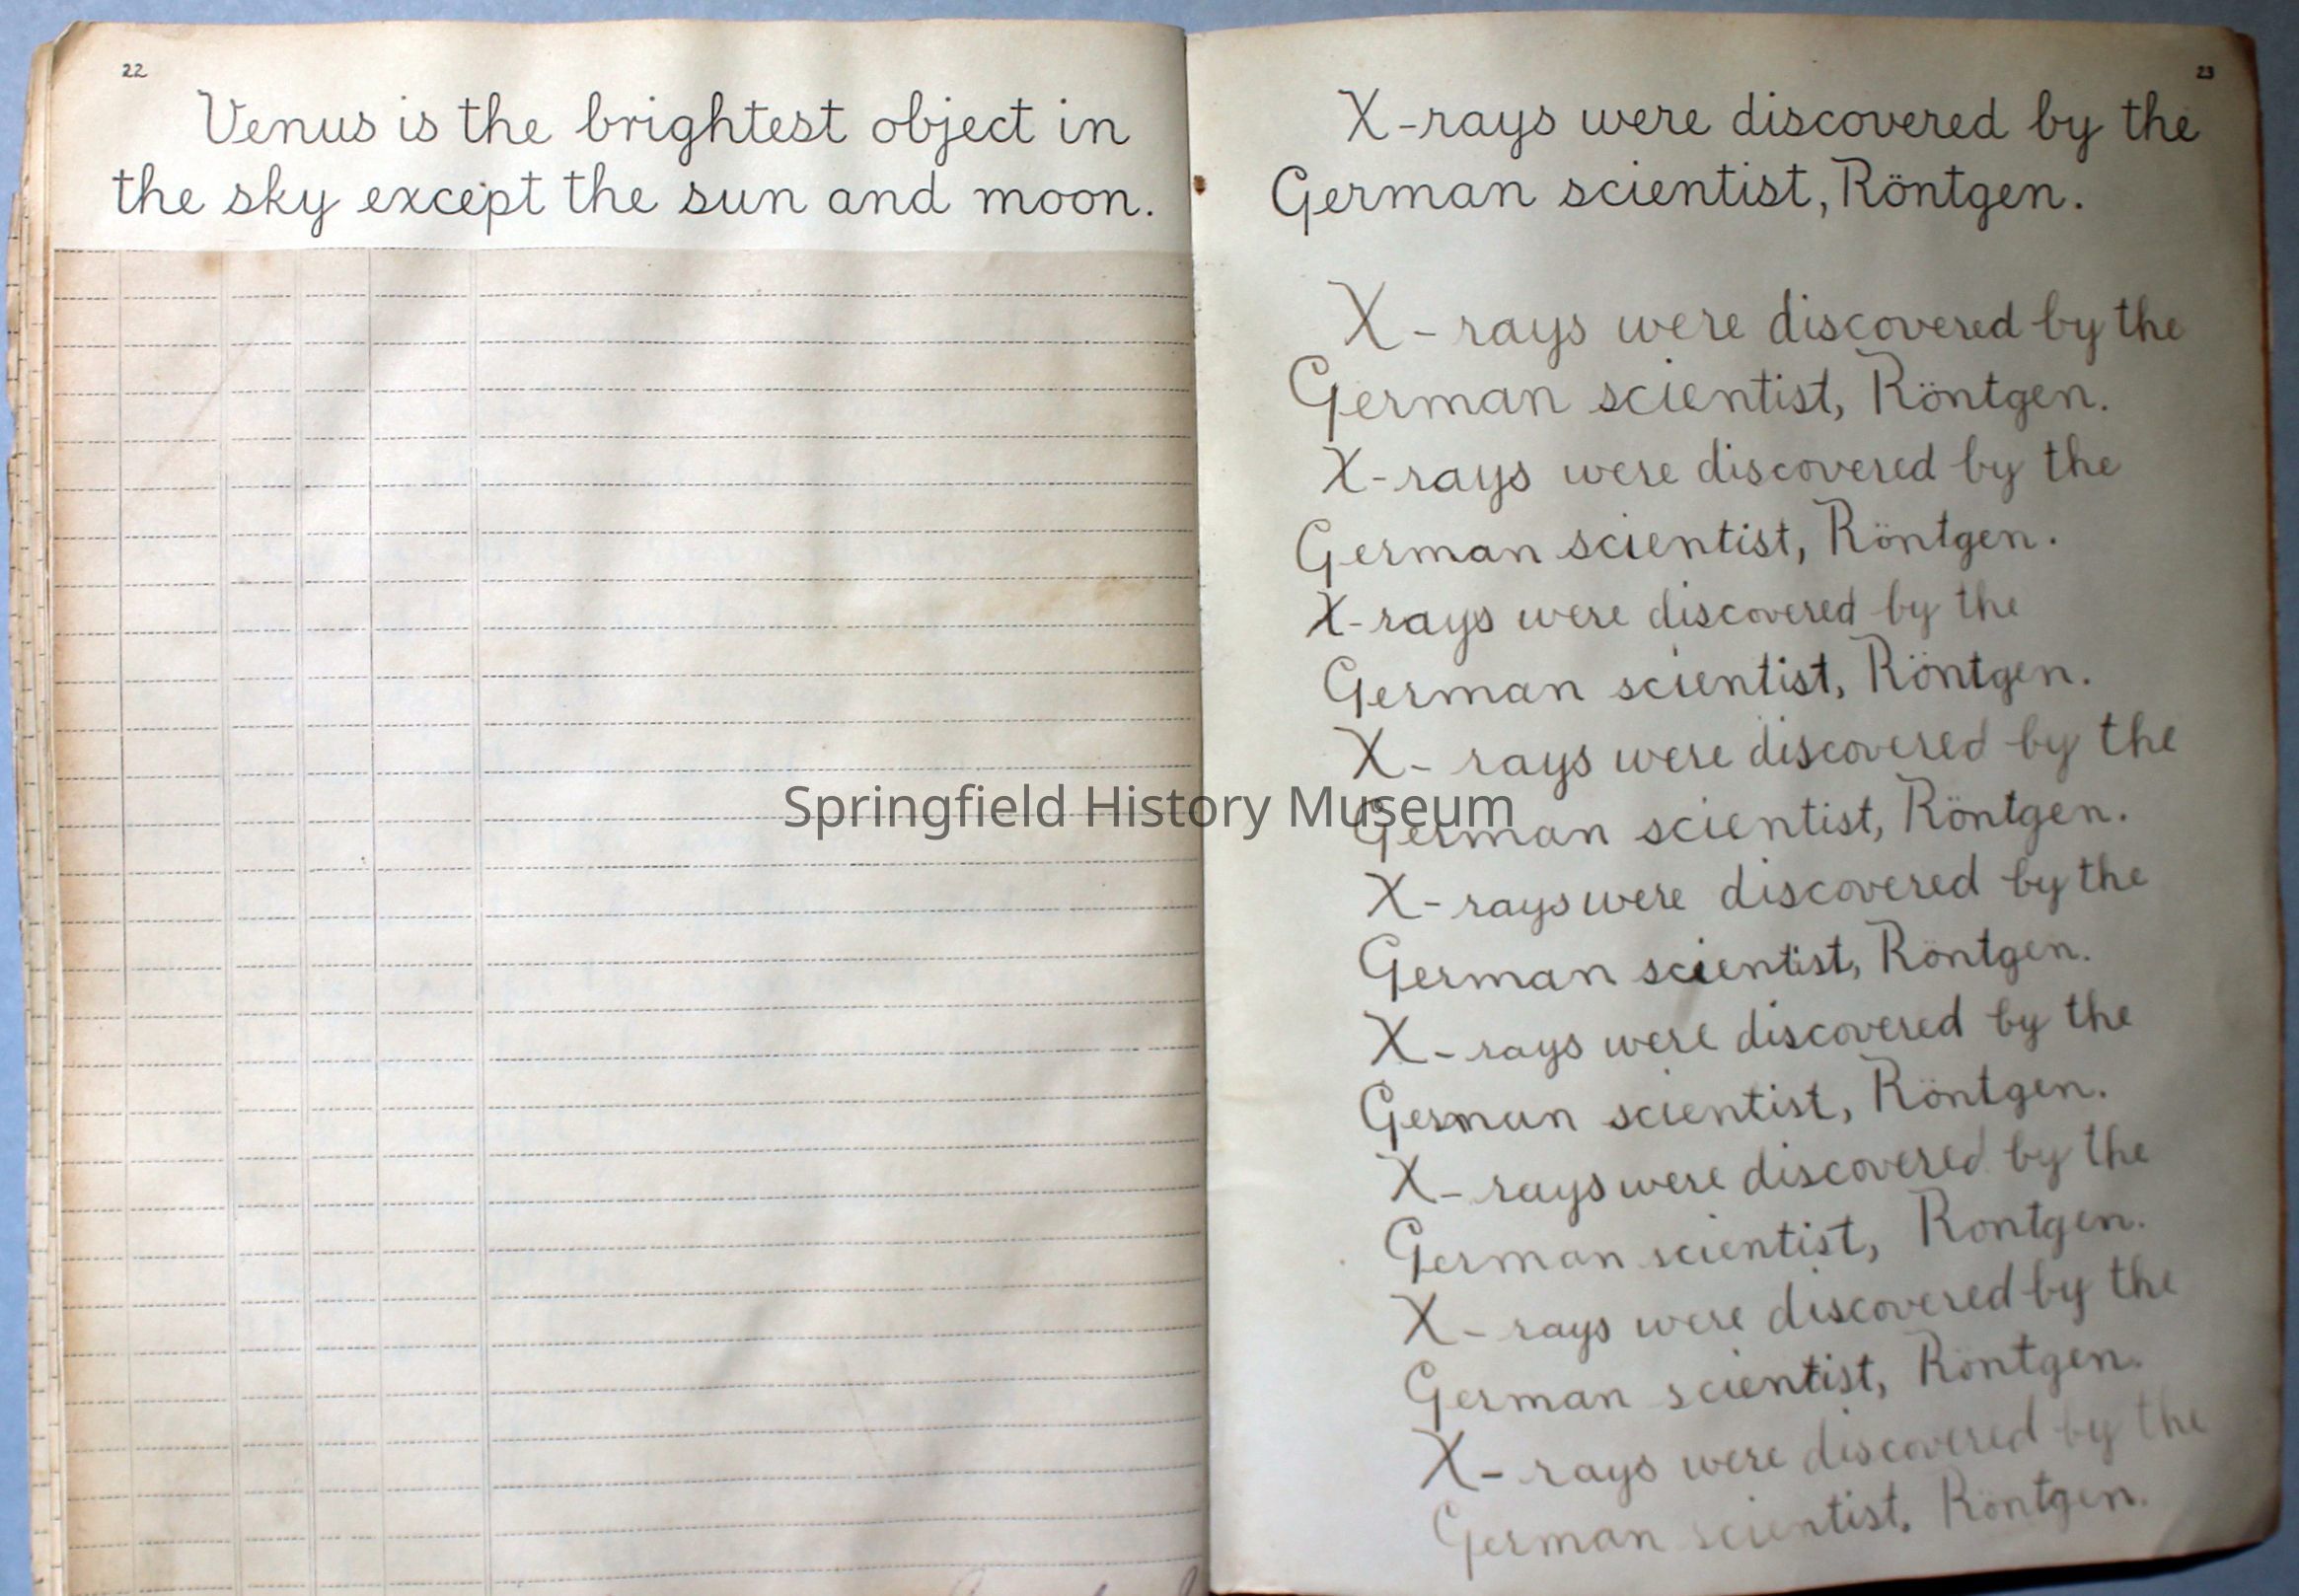 22
Venus is the brightest object in
the sky except the sun and moon.
23
X-rays were discovered by the
German scientist, Röntgen.
X-rays were discovered by the
German scientist, Röntgen.
X-rays were discovered by the
German scientist, Röntgen.
X-rays were discovered by the
German scientist, Röntgen.
X-rays were discovered by the
Springfield History Museum
German scientist, Röntgen.
X-rays were discovered by the
German scientist, Röntgen.
X-rays were discovered by the
German scientist, Röntgen.
X-rays were discovered by the
German scientist, Rontgen.
X-rays were discovered by the
German scientist, Röntgen.
X-rays were discovered by the
German scientist, Röntgen.